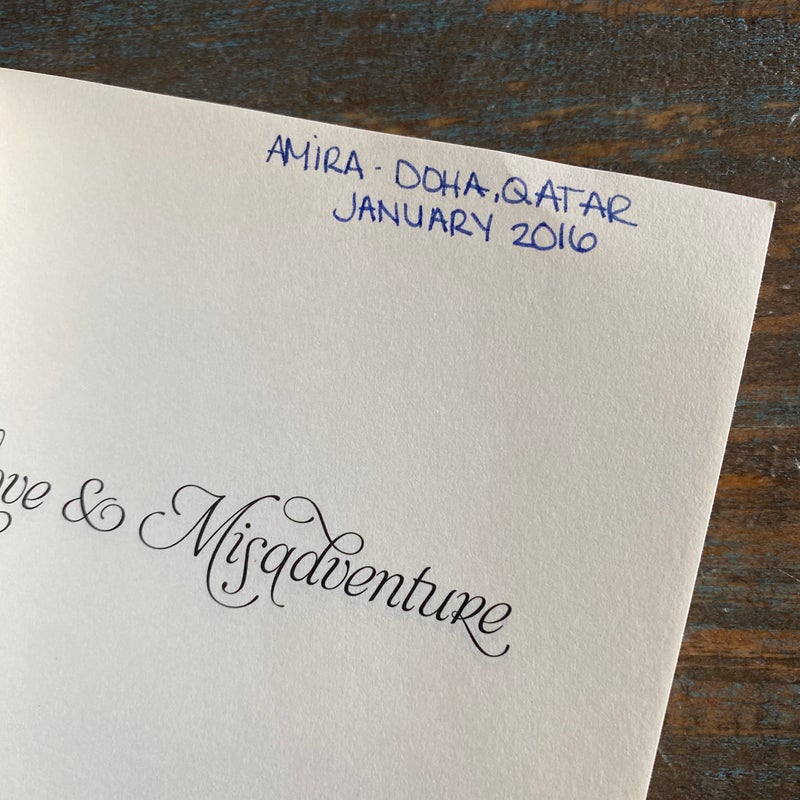 AMIRA - DOHA, QATAR
JANUARY 2016
ove & Misadventure